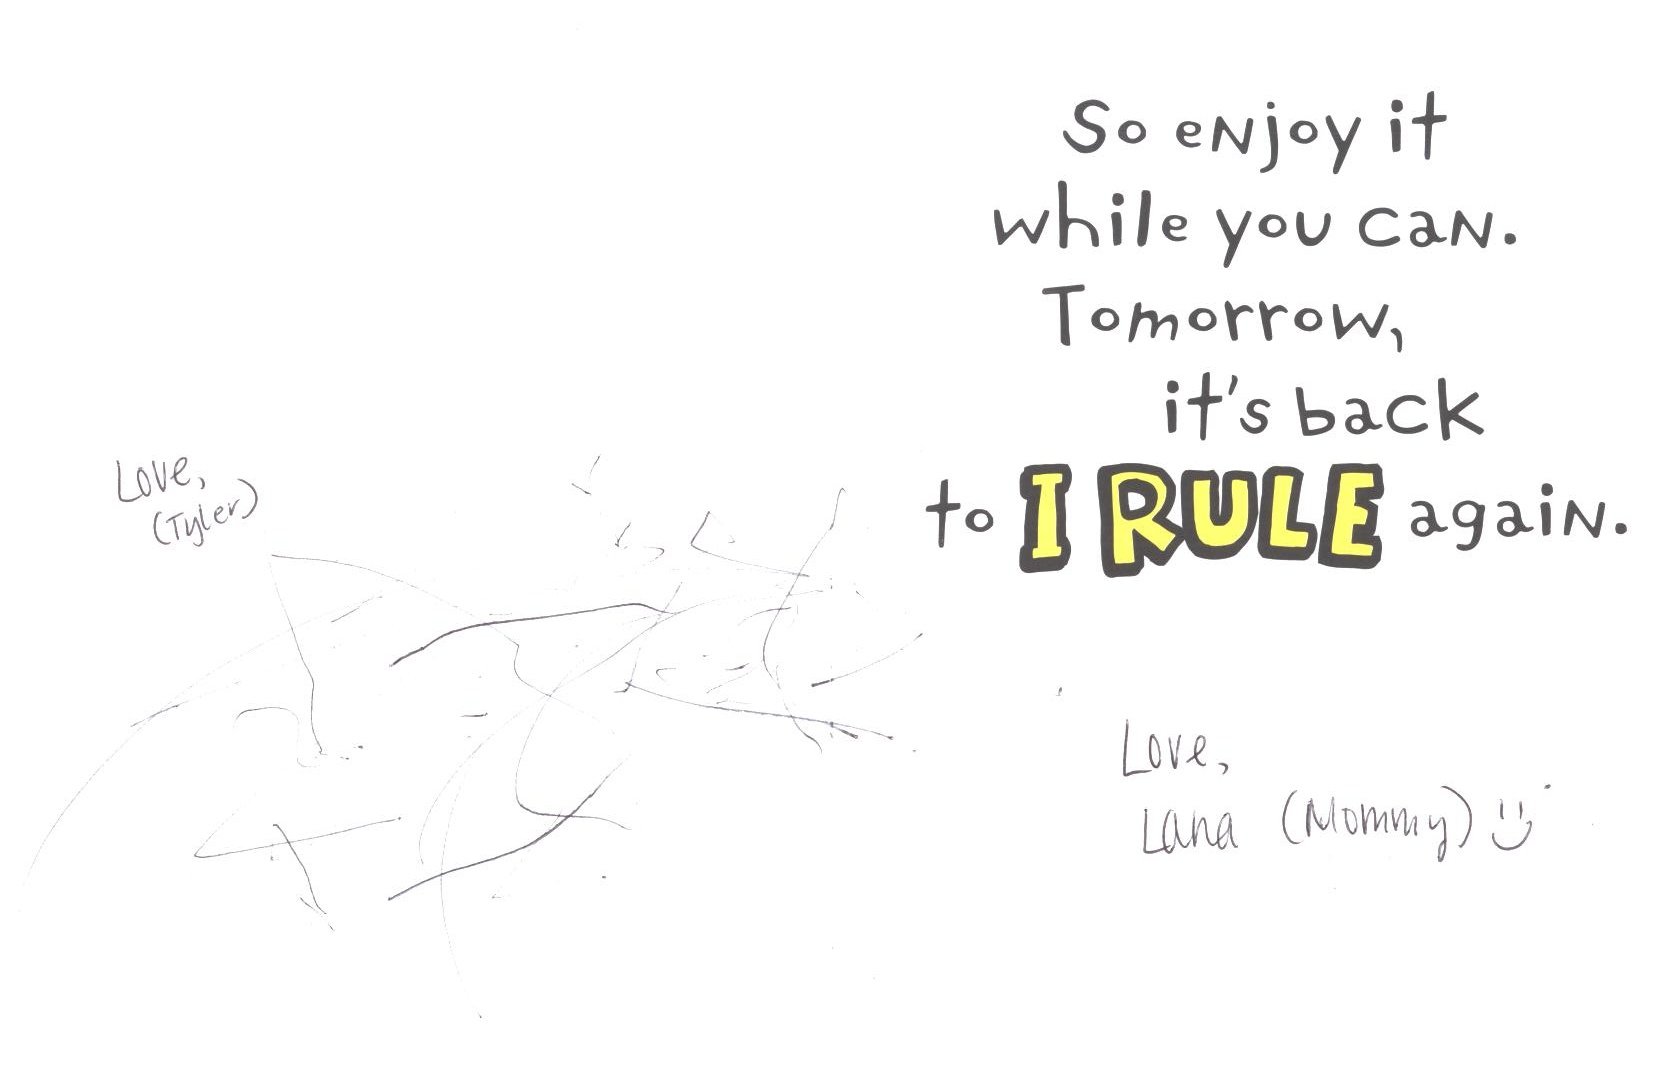 Love,
(Tyler)
So enjoy it
while you can.
Tomorrow,
it's back
to I RULE again.
Love,
Lana (Mommy)